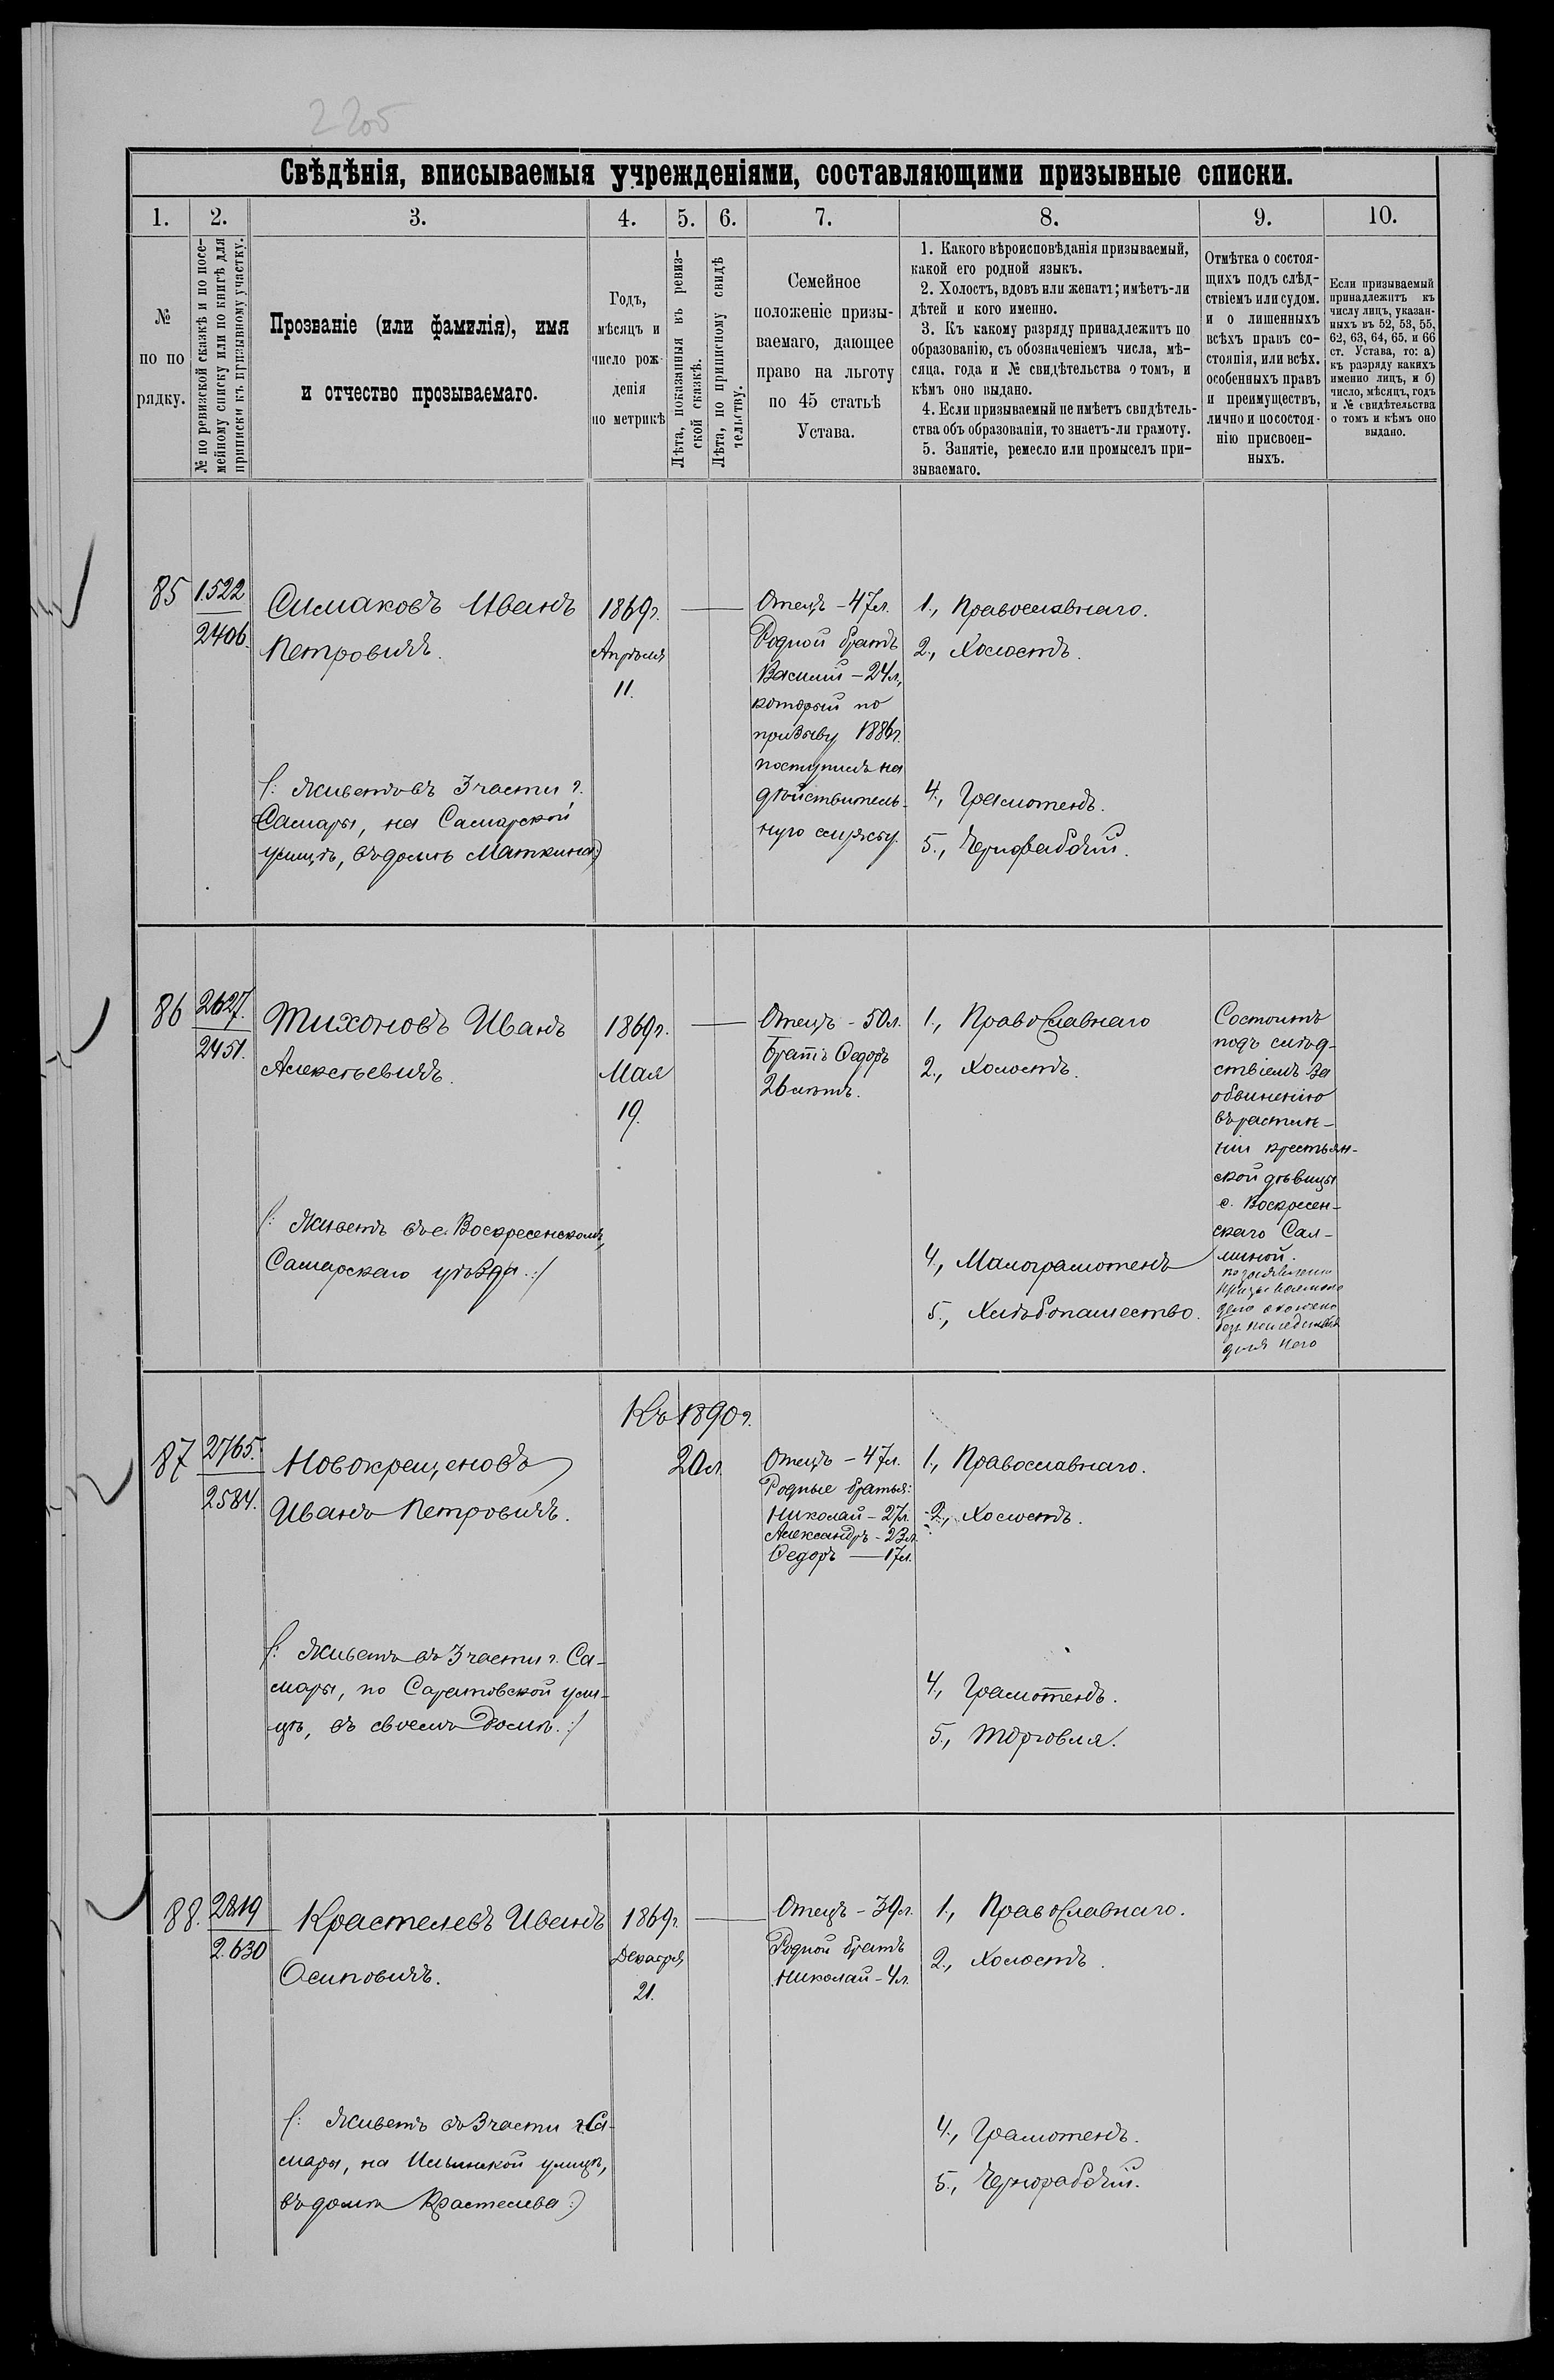 2205
Свѣдѣнія, вписываемыя учрежденіями, составляющими призывные списки.
1. 2. 3. 4. 5. 6. 7. 8. 9. 10.
№
по по
рядку.
№ по ревизской сказкѣ и по посе-
мейному списку или по книгѣ для
приписки къ призывному участку.
Прозваніе (или фамилія), имя
и отчество прозываемаго.
Годъ,
мѣсяцъ и
число рож
денія
по метрикѣ
Лѣта, показанныя въ ревиз-
ской сказкѣ.
Лѣта, по приписному свидѣ
тельству.
Семейное
положеніе призы-
ваемаго, дающее
право на льготу
по 45 статьѣ
Устава.
1. Какого вѣроисповѣданія призываемый,
какой его родной языкъ.
2. Холостъ, вдовъ или женатъ; имѣетъ-ли
дѣтей и кого именно.
3. Къ какому разряду принадлежитъ по
образованію, съ обозначеніемъ числа, мѣ-
сяца. года и № свидѣтельства о томъ, и
кѣмъ оно выдано.
4. Если призываемый не имѣетъ свидѣтель-
ства объ образованіи, то знаетъ-ли грамоту.
5. Занятіе, ремесло или промыселъ при-
зываемаго.
Отмѣтка о состоя-
щихъ подъ слѣд-
ствіемъ или судом.
и о лишенныхъ
всѣхъ правъ со-
стоянія, или всѣх.
особенныхъ правъ
и преимуществъ,
лично и по состоя-
нію присвоен-
ныхъ.
Если призываемый
принадлежитъ къ
числу лицъ, указан-
ныхъ въ 52, 53, 55,
62, 63, 64, 65. и 66
ст. Устава, то: а)
къ разряду какихъ
именно лицъ, и б)
число, мѣсяцъ, годъ
и № свидѣтельства
о томъ и кѣмъ оно
выдано.
85
1522
2406.
Симаковъ Иванъ
Петровичъ.
/: Живетъ въ 3 части г.
Самары, на Самарской
улицѣ, въ домѣ Маткина:)
1869г.
Апрѣля
11.
Отецъ - 47л.
Родной братъ
Василій - 24л,
который по
призыву 1886г.
поступилъ на
дѣйствитель-
ную службу.
1., Православнаго.
2., Холостъ.
4., Грамотенъ.
5., Чернорабочій.
86
2627.
2451.
Тихоновъ Иванъ
Алексѣевичъ.
/: Живетъ въ с. Воскресенскомъ,
Самарскаго уѣзда.:/
1869г.
Мая
19.
Отецъ - 50л.
братъ Федоръ
26 лѣтъ.
1., Православнаго
2., Холостъ.
4., Малограмотенъ
5., Хлѣбопашество.
Состоитъ
подъ слѣд-
ствіемъ за
обвиненію
въ растлѣ-
ніи крестьян-
ской дѣвицы
с. Воскресен-
скаго Сал-
миной.
по заявленію
призываемаго
дѣло окончено
безъ послѣдствій
для него
87
2765.
2584.
Новокрещеновъ
Иванъ Петровичъ.
/: Живетъ въ 3 части г. Са-
мары, по Саратовской ули-
цѣ, въ своемъ домѣ.:/
Къ 1890г.
20л.
Отецъ - 47л.
Родные братья:
Николай - 27л.
Александръ - 23л.
Федоръ — 17л.
1., Православнаго.
2., Холостъ.
4., Грамотенъ.
5., Торговля.
88.
2819
2630
Крастелевъ Иванъ
Осиповичъ.
/: Живетъ въ 3 части г. Са-
мары, на Ильинской улицѣ,
въ домѣ Крастелева:)
1869г.
Декабря
21.
Отецъ - 39л.
Родной братъ
Николай - 4л.
1., Православнаго.
2., Холостъ.
4., Грамотенъ.
5., Чернорабочій.